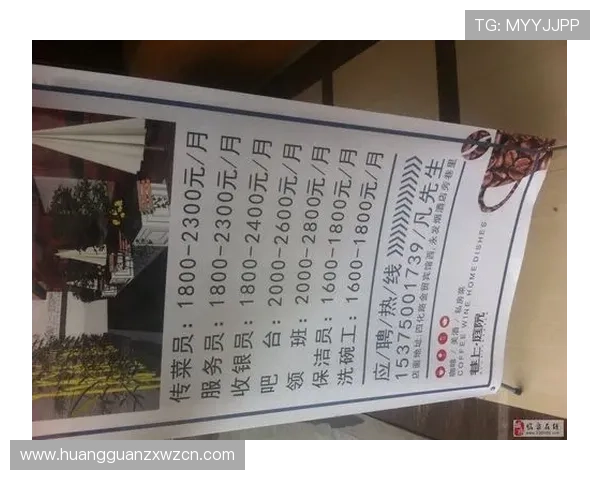 TG: MYYJJPP
传菜员：1800-2300元/月
服务员：1800-2300元/月
收银员：1800-2400元/月
吧 台：2000-2600元/月
领 班：2000-2800元/月
保洁员：1600-1800元/月
洗碗工：1600-1800元/月
应/聘/热/线
15375001739/凡先生
店面地址:四化路金茵宾馆西,永发烟酒店旁巷里
咖啡/美酒/私房菜
COFFEE WINE HOME DISHES
巷上·庭院
临泉在线
www.huangguanzxwzcn.com